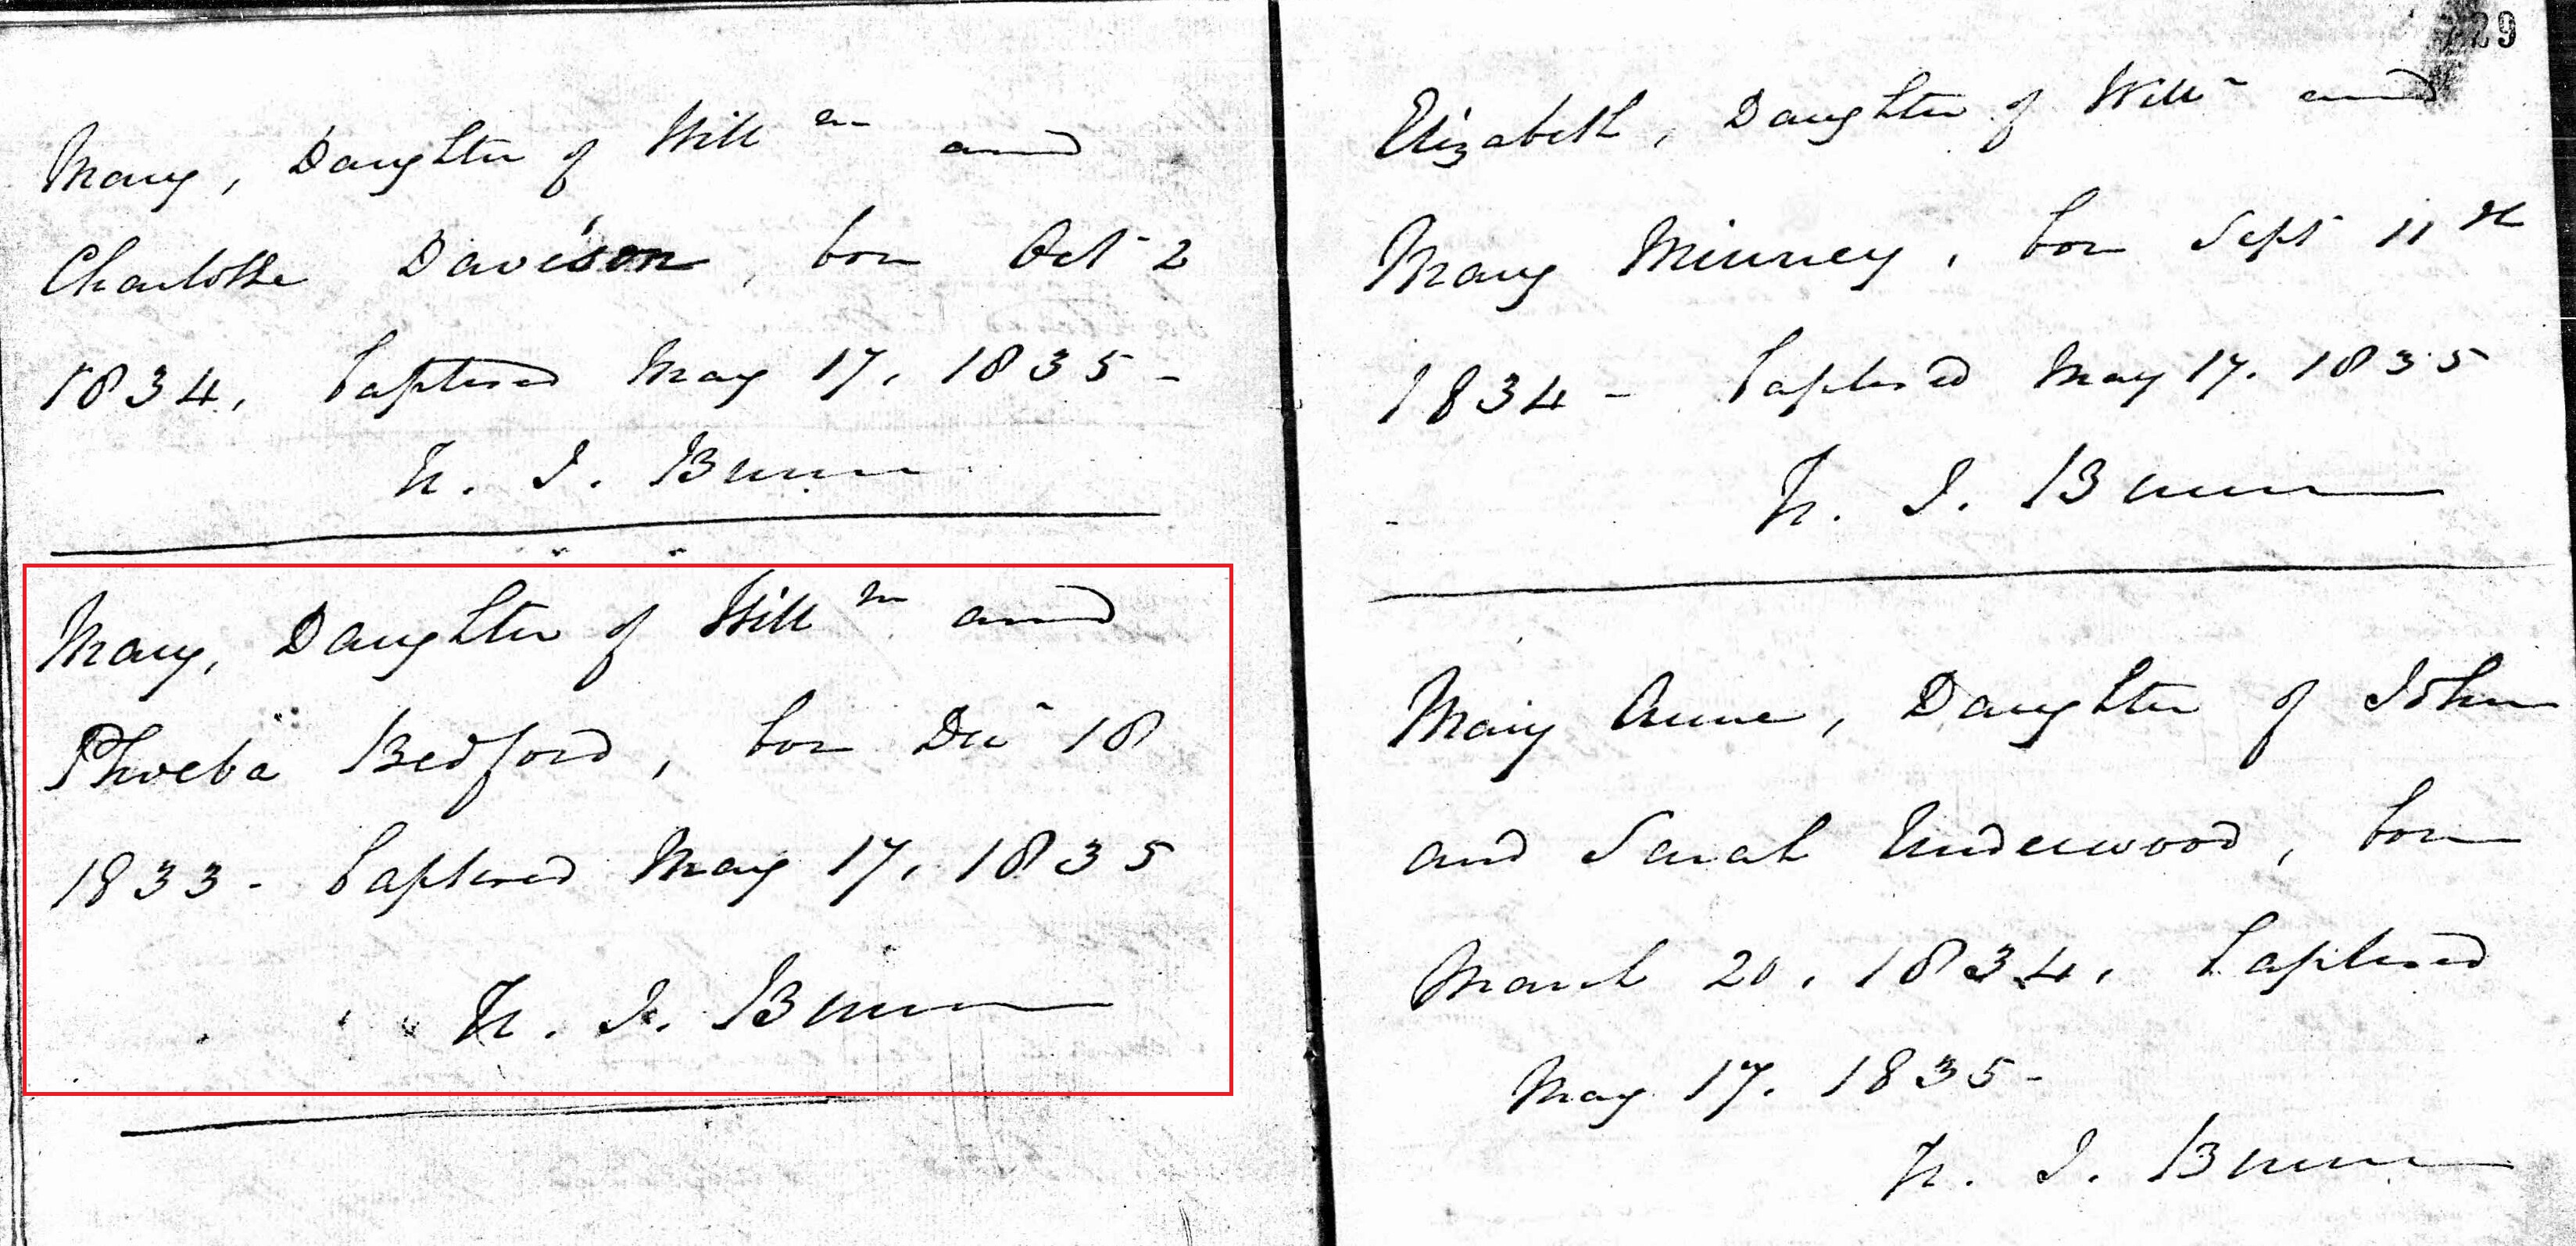 Mary, Daughter of Will^m and
Charlotte Davison, born Oct 2
1834, baptised May 17, 1835 -
J. Bunn
Mary, Daughter of Will^m and
Phoeba Bedford, born Dec 18
1833 - baptised May 17, 1835
J. Bunn
29
Elizabeth, Daughter of Will^m and
Mary Minney, born Sept 11th
1834 - baptised May 17. 1835
J. Bunn
Mary Anne, Daughter of John
and Sarah Underwood, born
March 20, 1834, baptised
May 17. 1835 -
J. Bunn